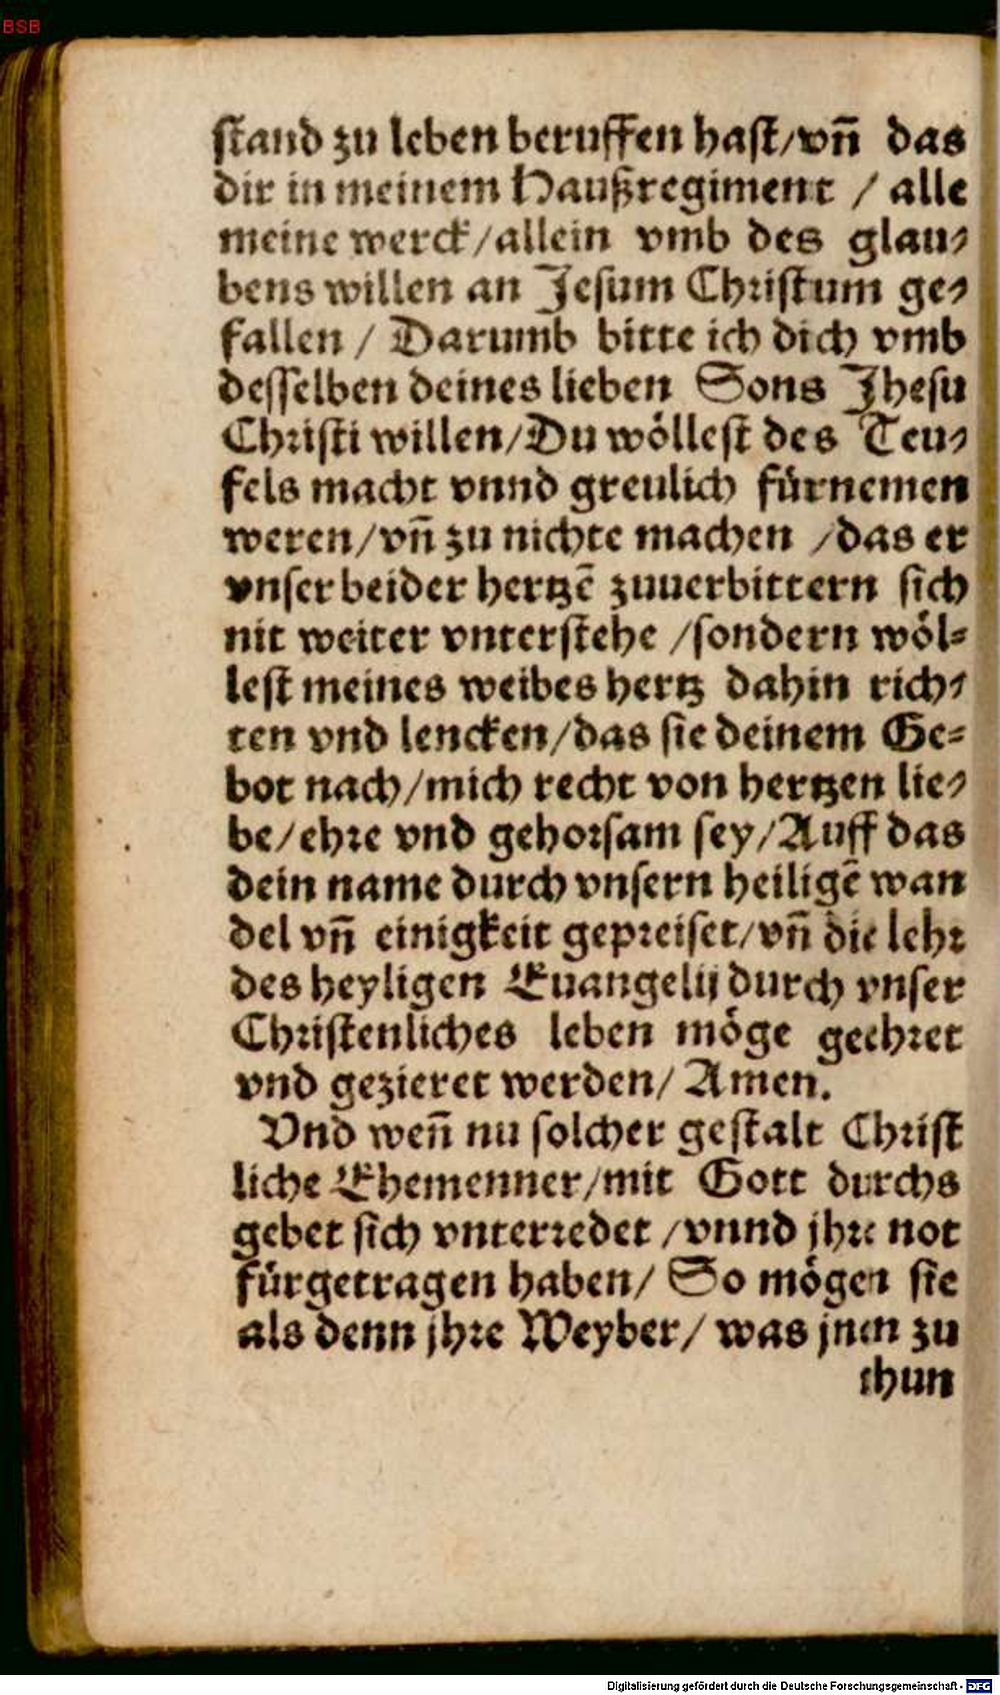 BSB
stand zu leben beruffen hast/vn̄ das
dir in meinem Haußregiment / alle
meine werck/allein vmb des glau-
bens willen an Jesum Christum ge-
fallen / Darumb bitte ich dich vmb
desselben deines lieben Sons Jhesu
Christi willen/Du wöllest des Teu-
fels macht vnnd greulich fürnemen
weren/vn̄ zu nichte machen /das er
vnser beider hertzē zuuerbittern sich
nit weiter vnterstehe /sondern wöl-
lest meines weibes hertz dahin rich-
ten vnd lencken/das sie deinem Ge-
bot nach/mich recht von hertzen lie-
be/ehre vnd gehorsam sey/Auff das
dein name durch vnsern heiligē wan
del vn̄ einigkeit gepreiset/vn̄ die lehr
des heyligen Euangelij durch vnser
Christenliches leben möge geehret
vnd gezieret werden/ Amen.
Vnd wen̄ nu solcher gestalt Christ
liche Ehemenner/mit Gott durchs
gebet sich vnterredet /vnnd jhre not
fürgetragen haben/ So mögen sie
als denn jhre Weyber/ was jnen zu
thun
Digitalisierung gefördert durch die Deutsche Forschungsgemeinschaft - DFG